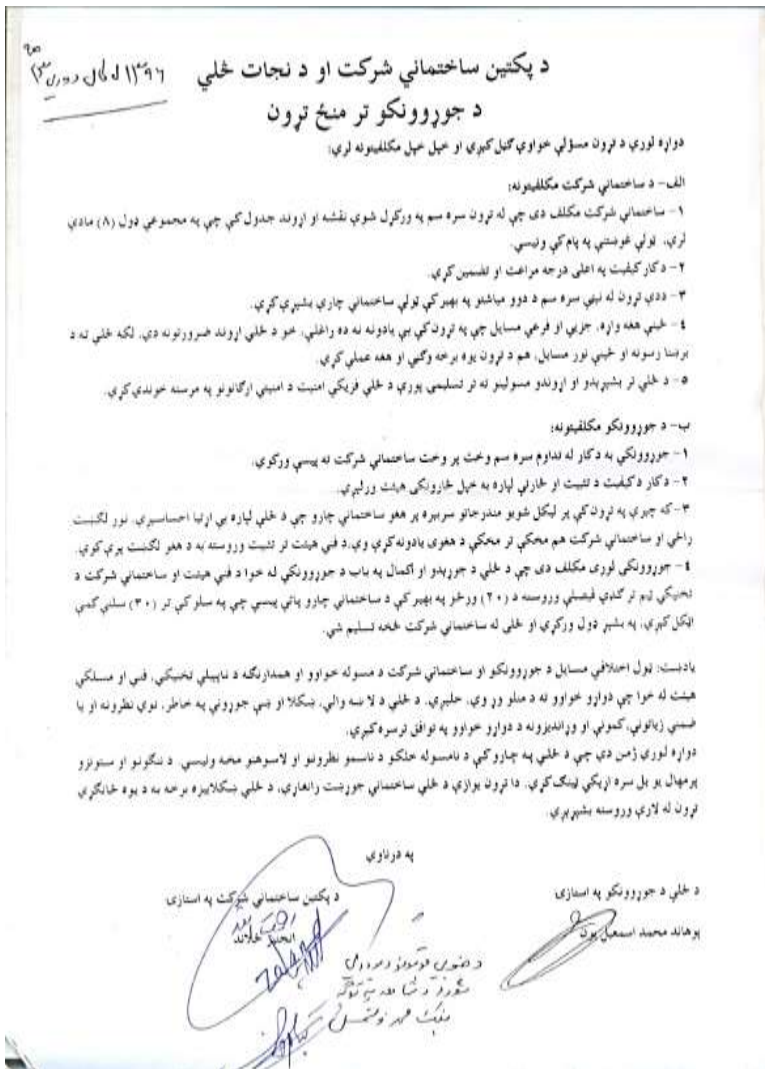 ۱۳۹۶ ل کال د وري ۱۳
د پکتین ساختماني شرکت او د نجات څلي
د جوړوونکو تر منځ تړون
دواړه لوري د تړون مسؤلې خواوې ګڼل کېږي او خپل خپل مکلفیتونه لري:
الف- د ساختماني شرکت مکلفیتونه:
۱- ساختماني شرکت مکلف دی چې له تړون سره سم په ورکړل شوې نقشه او اړوند جدول کې چې په مجموعي ډول (۸) مادې
لري، ټولې غوښتنې په پام کې ونیسي.
۲- د کار کیفیت په اعلی درجه مراعت او تضمین کړي.
۳- ددې تړون له نېټې سره سم د دوو میاشتو په بهیر کې ټولې ساختماني چارې بشپړې کړي.
٤- ځینې هغه واړه، جزیي او فرعي مسایل چې په تړون کې یې یادونه نه ده راغلې، خو د څلي اړوند ضرورتونه دي، لکه څلي ته د
برېښنا رسونه او ځینې نور مسایل، هم د تړون یوه برخه وګڼي او هغه عملي کړي.
۵- د څلي تر بشپړېدو او اړوندو مسولینو ته تر تسلیمۍ پورې د څلي فزیکي امنیت د امنیتي ارګانونو په مرسته خوندي کړي.
ب- د جوړوونکو مکلفیتونه:
۱- جوړوونکي به د کار له تداوم سره سم وخت پر وخت ساختماني شرکت ته پیسې ورکوي.
۲- د کار د کیفیت د تثبیت او څارنې لپاره به خپل څارونکی هیئت ورلېږي.
۳- که چېرې په تړون کې پر لیکل شویو مندرجاتو سربېره پر هغو ساختماني چارو چې د څلي لپاره یې اړتیا احساسېږي، نور لګښت
راځي او ساختماني شرکت هم مخکې تر مخکې د هغوی یادونه کړې وي، د فني هیئت تر تثبت وروسته به د هغو لګښت پرې کوي.
٤- جوړوونکی لوری مکلف دی چې د څلي د جوړېدو او اکمال په باب د جوړوونکي له خوا د فني هیئت او ساختماني شرکت د
تخنیکي ټیم تر ګډې فیصلې وروسته د (۲۰) ورځو په بهیر کې د ساختماني چارو پاتې پیسې چې په سلو کې تر (۳۰) سلنې کمې
اټکل کېږي، په بشپړ ډول ورکړي او څلی له ساختماني شرکت څخه تسلیم شي.
یادښت: ټول اختلافي مسایل د جوړوونکو او ساختماني شرکت د مسوله خواوو او همدارنګه د ناپییلي تخنیکي، فني او مسلکي
هیئت له خوا چې دواړو خواوو ته د منلو وړ وي، حلېږي. د څلي د لا ښه والي، ښکلا او ښې جوړونې په خاطر، نوي نظرونه او یا
ضمني زیاتونې، کمونې او وړاندیزونه د دواړو خواوو په توافق ترسره کېږي.
دواړه لوري ژمن دي چې د څلي په چارو کې د نامسوله خلکو د ناسمو نظرونو او لاسوهنو مخه ونیسي د ننګونو او ستونزو
پرمهال یو بل سره اړیکې ټینګ کړي. دا تړون یوازې د څلي ساختماني جوړښت رانغاړي، د څلي ښکلاییزه برخه به د یوه ځانګړي
تړون له لارې وروسته بشپړېږي.
په درناوي
د څلي د جوړوونکو په استازۍ
د پکتین ساختماني شرکت په استازۍ
پوهاند محمد اسمعیل یون
انجنیر ځلاند